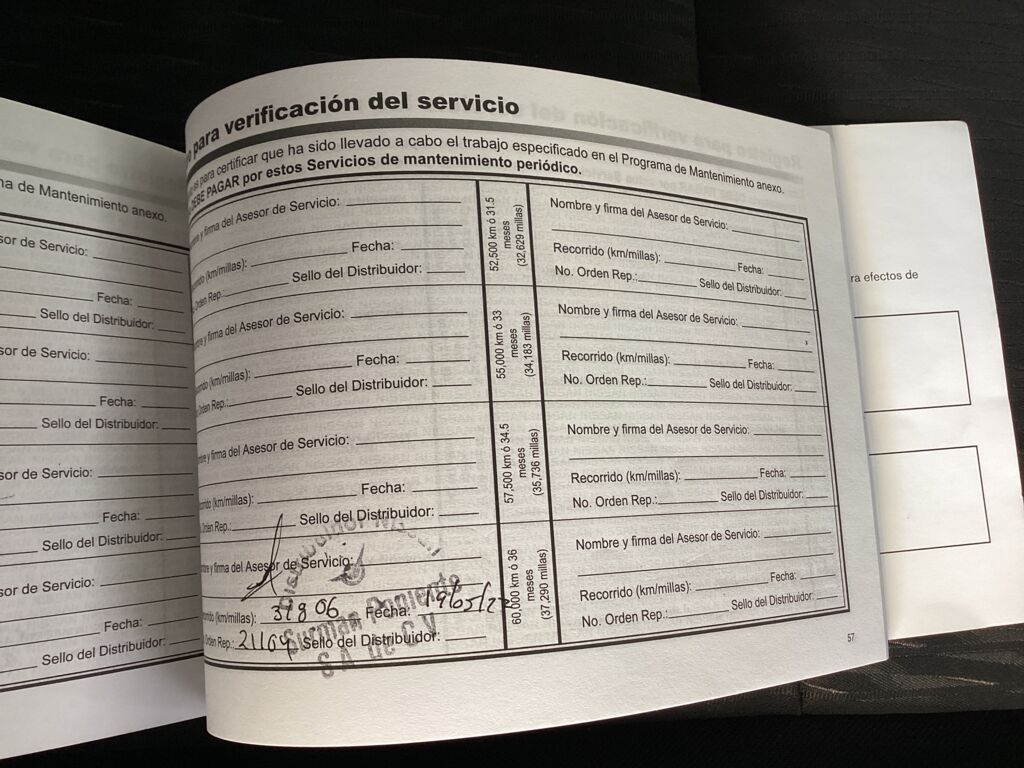 na de Mantenimiento anexo.
sor de Servicio:
Fecha:
Sello del Distribuidor:
sor de Servicio:
Fecha:
Sello del Distribuidor:
sor de Servicio:
Fecha:
Sello del Distribuidor:
sor de Servicio:
Fecha:
Sello del Distribuidor:
para verificación del servicio
para certificar que ha sido llevado a cabo el trabajo especificado en el Programa de Mantenimiento anexo.
DEBE PAGAR por estos Servicios de mantenimiento periódico.
y firma del Asesor de Servicio:
(km/millas): Fecha:
Orden Rep.: Sello del Distribuidor:
y firma del Asesor de Servicio:
(km/millas): Fecha:
Orden Rep.: Sello del Distribuidor:
y firma del Asesor de Servicio:
(km/millas): Fecha:
Orden Rep.: Sello del Distribuidor:
y firma del Asesor de Servicio:
(km/millas): 39806 Fecha:
Orden Rep.: Sello del Distribuidor:
Guzman Poniente
S.A. de C.V.
52,500 km ó 31.5
meses
(32,629 millas)
55,000 km ó 33
meses
(34,183 millas)
57,500 km ó 34.5
meses
(35,736 millas)
60,000 km ó 36
meses
(37,290 millas)
Nombre y firma del Asesor de Servicio:
Recorrido (km/millas): Fecha:
No. Orden Rep.: Sello del Distribuidor:
Nombre y firma del Asesor de Servicio:
Recorrido (km/millas): Fecha:
No. Orden Rep.: Sello del Distribuidor:
Nombre y firma del Asesor de Servicio:
Recorrido (km/millas): Fecha:
No. Orden Rep.: Sello del Distribuidor:
Nombre y firma del Asesor de Servicio:
Recorrido (km/millas): Fecha:
No. Orden Rep.: Sello del Distribuidor:
57
ra efectos de